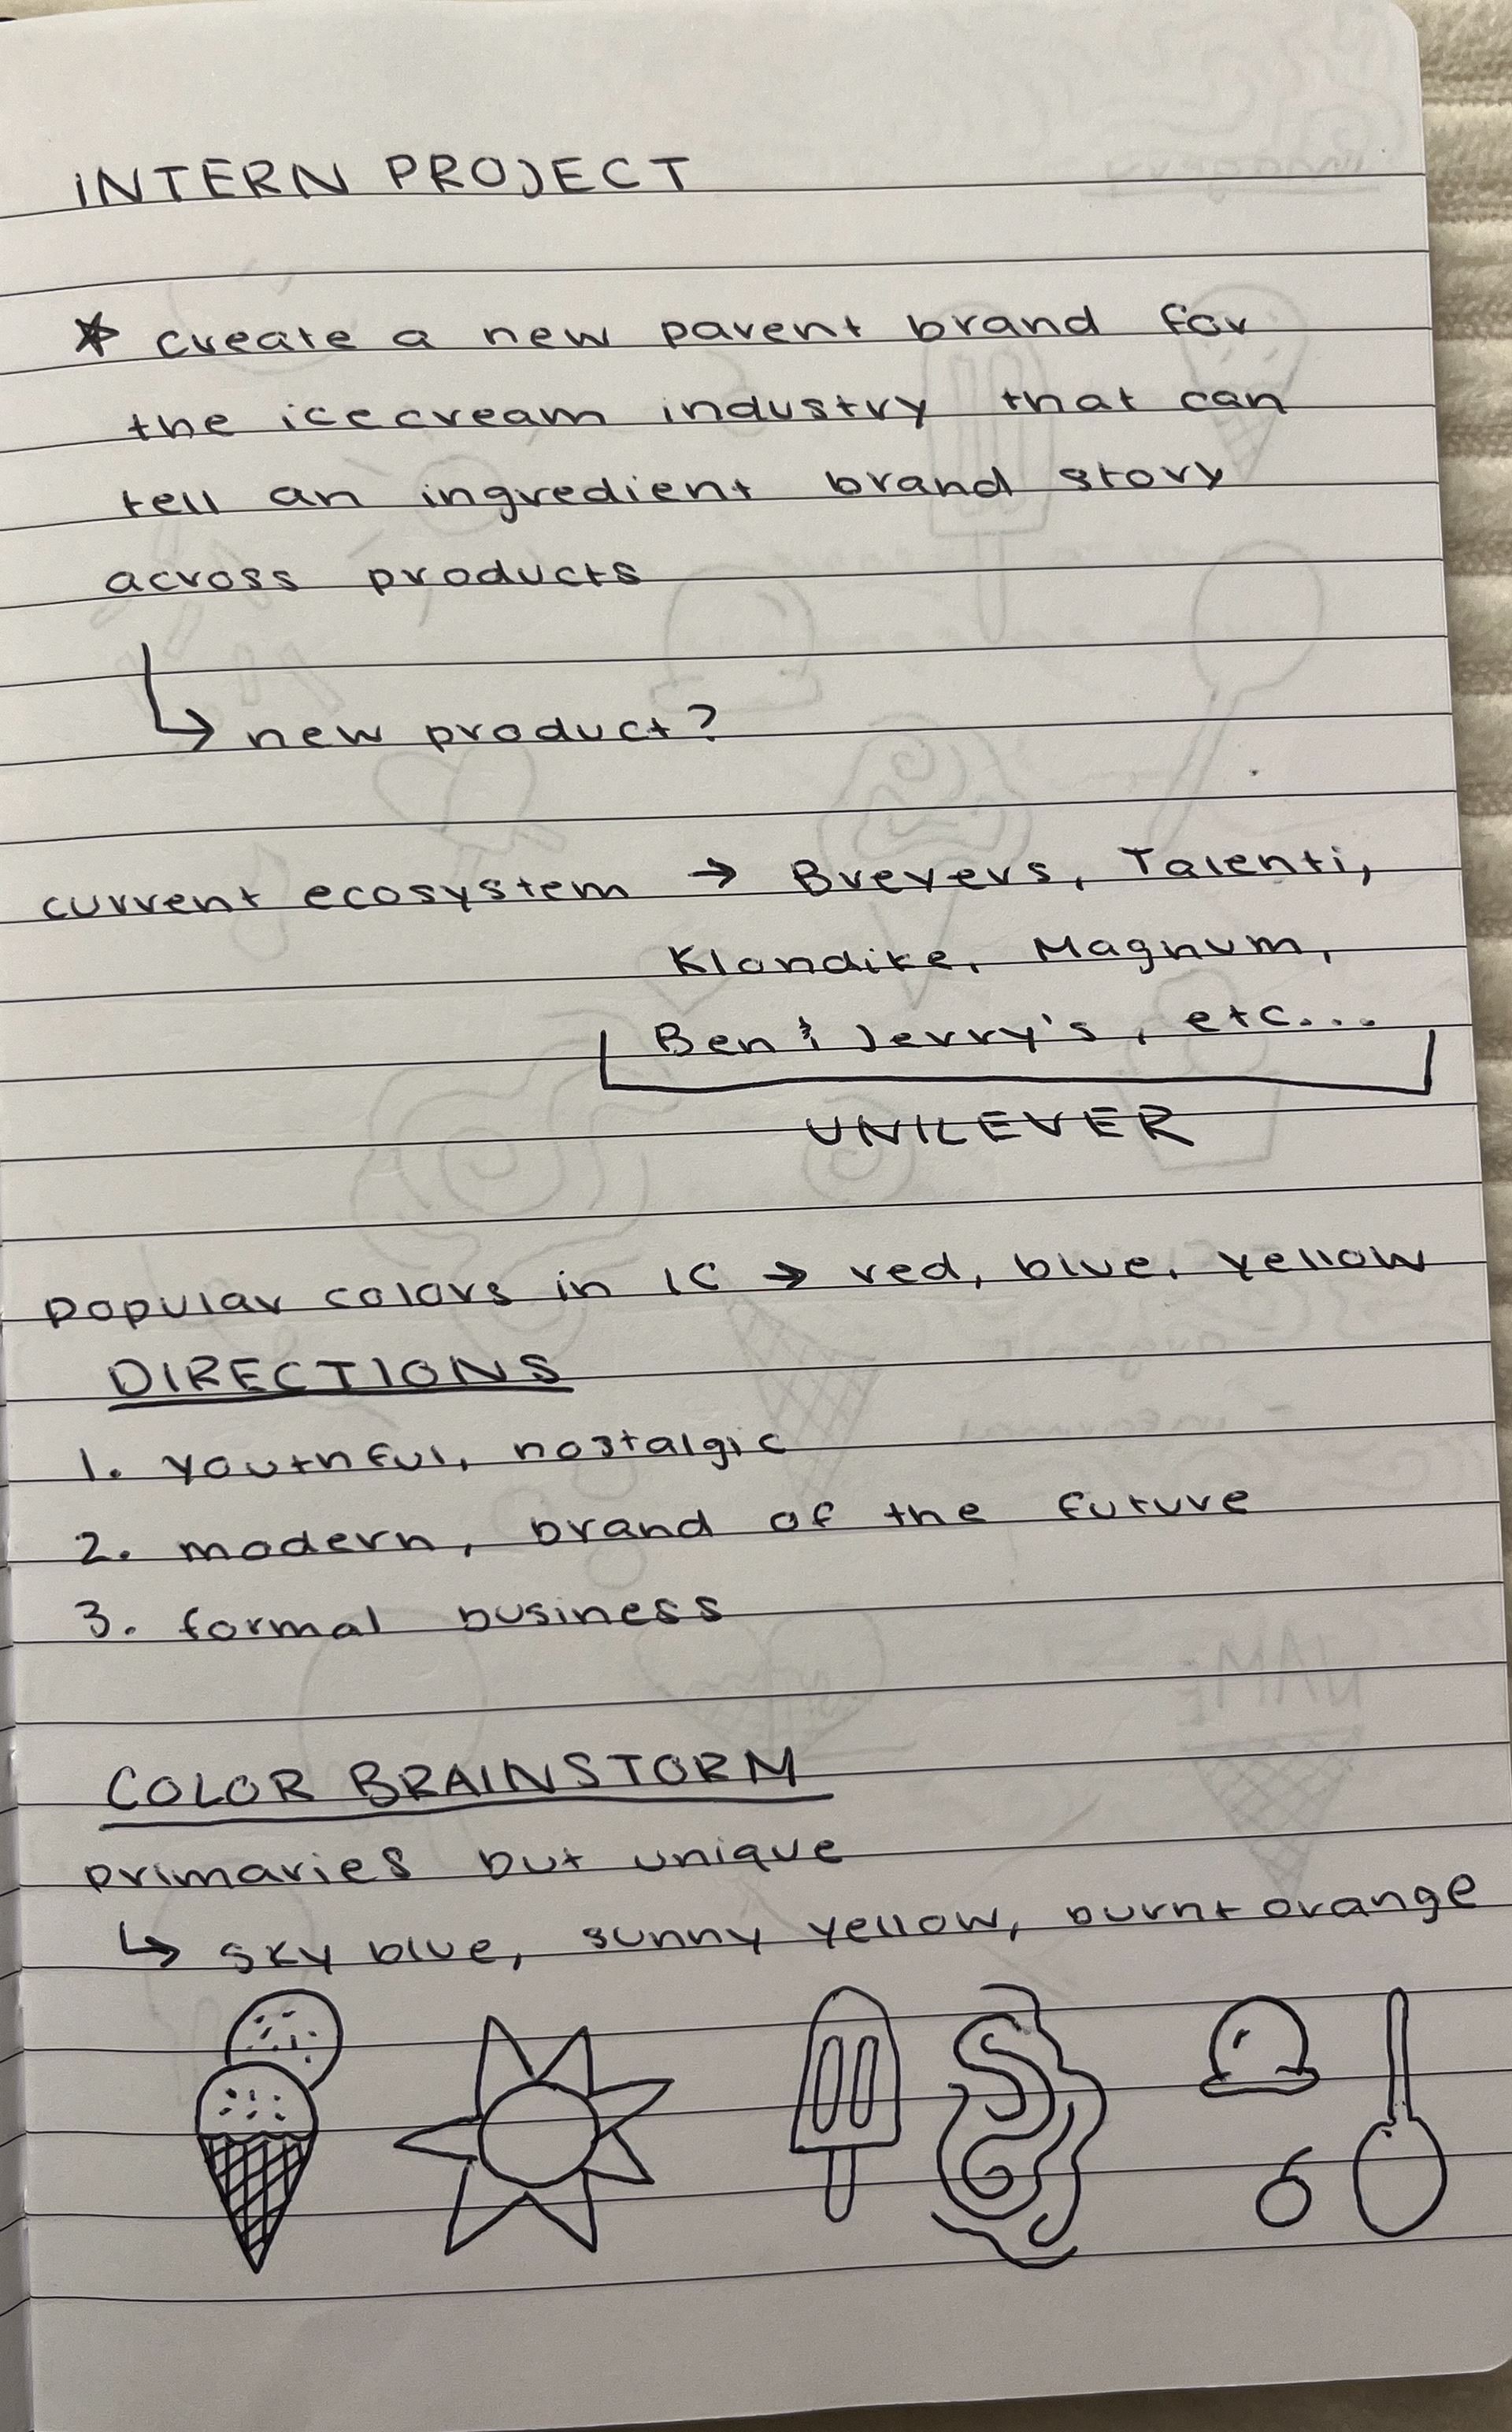 INTERN PROJECT
* create a new parent brand for
the icecream industry that can
tell an ingredient brand story
across products
↳ new product?
current ecosystem → Breyers, Talenti,
Klondike, Magnum,
Ben & Jerry's, etc...
UNILEVER
popular colors in IC → red, blue, yellow
DIRECTIONS
1. youthful, nostalgic
2. modern, brand of the future
3. formal business
COLOR BRAINSTORM
primaries but unique
↳ sky blue, sunny yellow, burnt orange